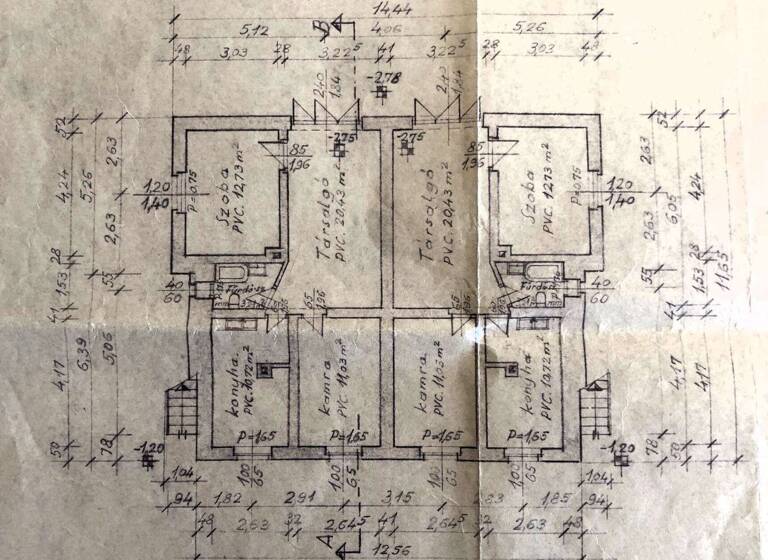 14,44
B
5,12
4,06
5,26
48
3,03
28
3,22⁵
41
3,22⁵
28
3,03
48
240
184
-2,78
240
184
52
52
-2,75
-2,75
85
1,96
85
1,96
2,63
2,63
4,24
5,26
1,20
1,40
p=0,75
Szoba
PVC. 12,73 m²
Társalgó
PVC. 20,43 m²
Társalgó
PVC. 20,43 m²
Szoba
PVC. 12,73 m²
p=0,75
1,20
1,40
6,05
4,24
2,63
2,63
28
28
1,53
55
40
60
Fürdősz.
Fürdősz.
40
60
55
1,53
11,65
41
65
1,96
65
1,96
41
4,17
6,39
5,06
konyha
PVC. 10,72 m²
kamra
PVC 11,03 m²
kamra
PVC. 11,03 m²
konyha
PVC. 10,72 m²
4,17
4,17
p=1,65
p=1,65
p=1,65
p=1,65
50
78
-1,20
-1,20
78
50
1,04
100
65
100
65
100
65
100
65
1,04
94
1,82
2,91
3,15
2,83
1,85
94
48
2,63
32
2,64⁵
41
2,64⁵
32
2,63
48
A
12,56